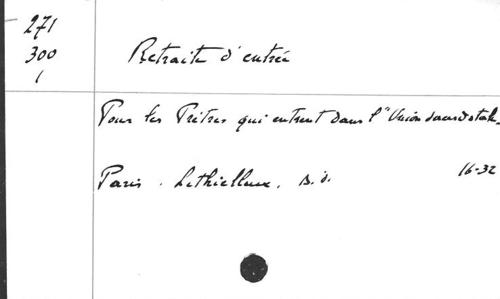 271
300
1
Retraite d'entrée
Pour les Prêtres qui entrent dans l'"Union
Paris. Lethielleux, s.d. 16-32